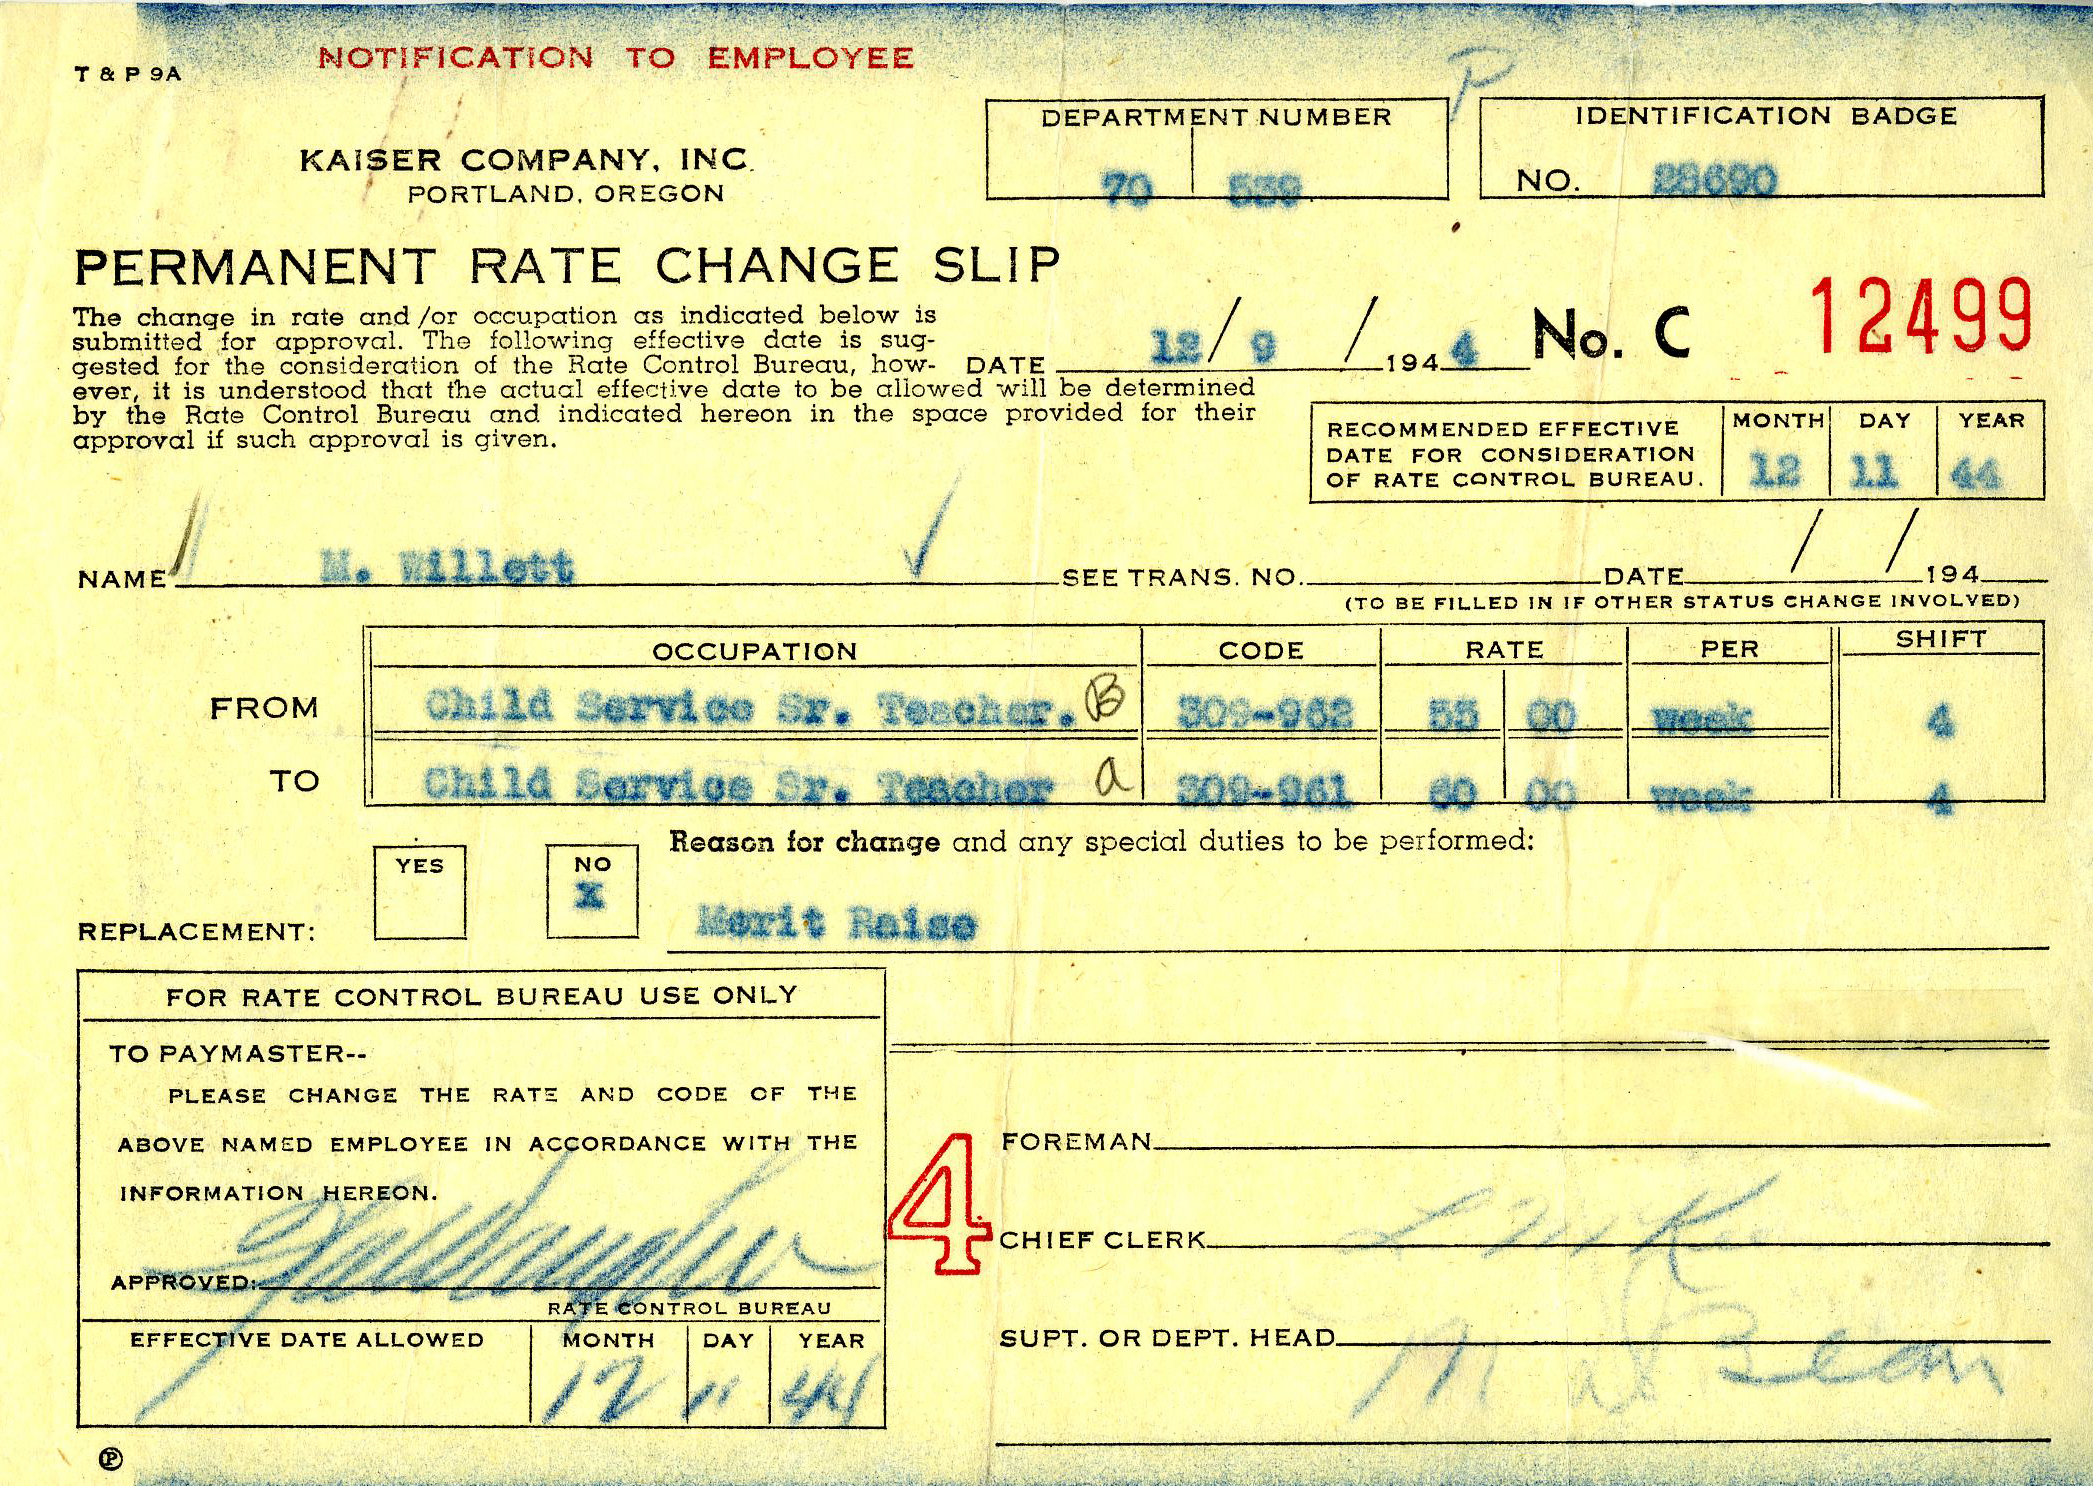 T & P 9A
NOTIFICATION TO EMPLOYEE
P
KAISER COMPANY, INC.
PORTLAND, OREGON
DEPARTMENT NUMBER
70 539
IDENTIFICATION BADGE
NO. 28690
PERMANENT RATE CHANGE SLIP
The change in rate and/or occupation as indicated below is
submitted for approval. The following effective date is sug-
gested for the consideration of the Rate Control Bureau, how-
ever, it is understood that the actual effective date to be allowed will be determined
by the Rate Control Bureau and indicated hereon in the space provided for their
approval if such approval is given.
DATE 12/ 9 / 1944
No. C 12499
RECOMMENDED EFFECTIVE
DATE FOR CONSIDERATION
OF RATE CONTROL BUREAU.
MONTH DAY YEAR
12 11 44
NAME M. Willett SEE TRANS. NO. DATE / / 194
(TO BE FILLED IN IF OTHER STATUS CHANGE INVOLVED)
OCCUPATION CODE RATE PER SHIFT
FROM Child Service Sr. Teacher. B 309-962 55 00 week 4
TO Child Service Sr. Teacher a 309-961 60 00 week 4
Reason for change and any special duties to be performed:
REPLACEMENT: YES NO X
Merit Raise
FOR RATE CONTROL BUREAU USE ONLY
TO PAYMASTER--
PLEASE CHANGE THE RATE AND CODE OF THE
ABOVE NAMED EMPLOYEE IN ACCORDANCE WITH THE
INFORMATION HEREON.
APPROVED:
RATE CONTROL BUREAU
EFFECTIVE DATE ALLOWED MONTH DAY YEAR
12 11 44
4
FOREMAN
CHIEF CLERK L McKee
SUPT. OR DEPT. HEAD
P